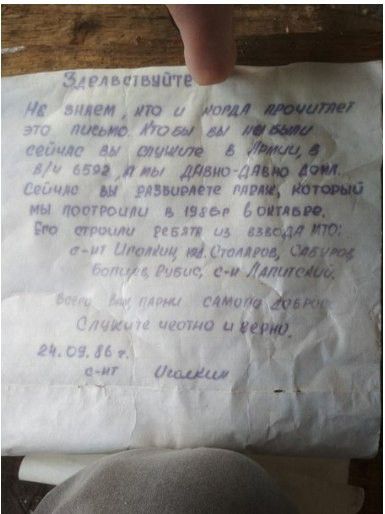 Здравствуйте
Не знаем, кто и когда прочитает
это письмо. Кто бы вы не были
сейчас вы служите в Армии, в
в/ч 6592, а мы давно-давно дома.
Сейчас вы разбираете гараж, который
мы построили в 1986г в октябре.
Его строили ребята из взвода МТО:
с-нт Иголкин, Столяров, Сабуров
Рубис, с-нт Лапитский.
Всего Вам, парни самого доброго
Служите честно и верно.
24.09.86 г.
с-нт Иголкин